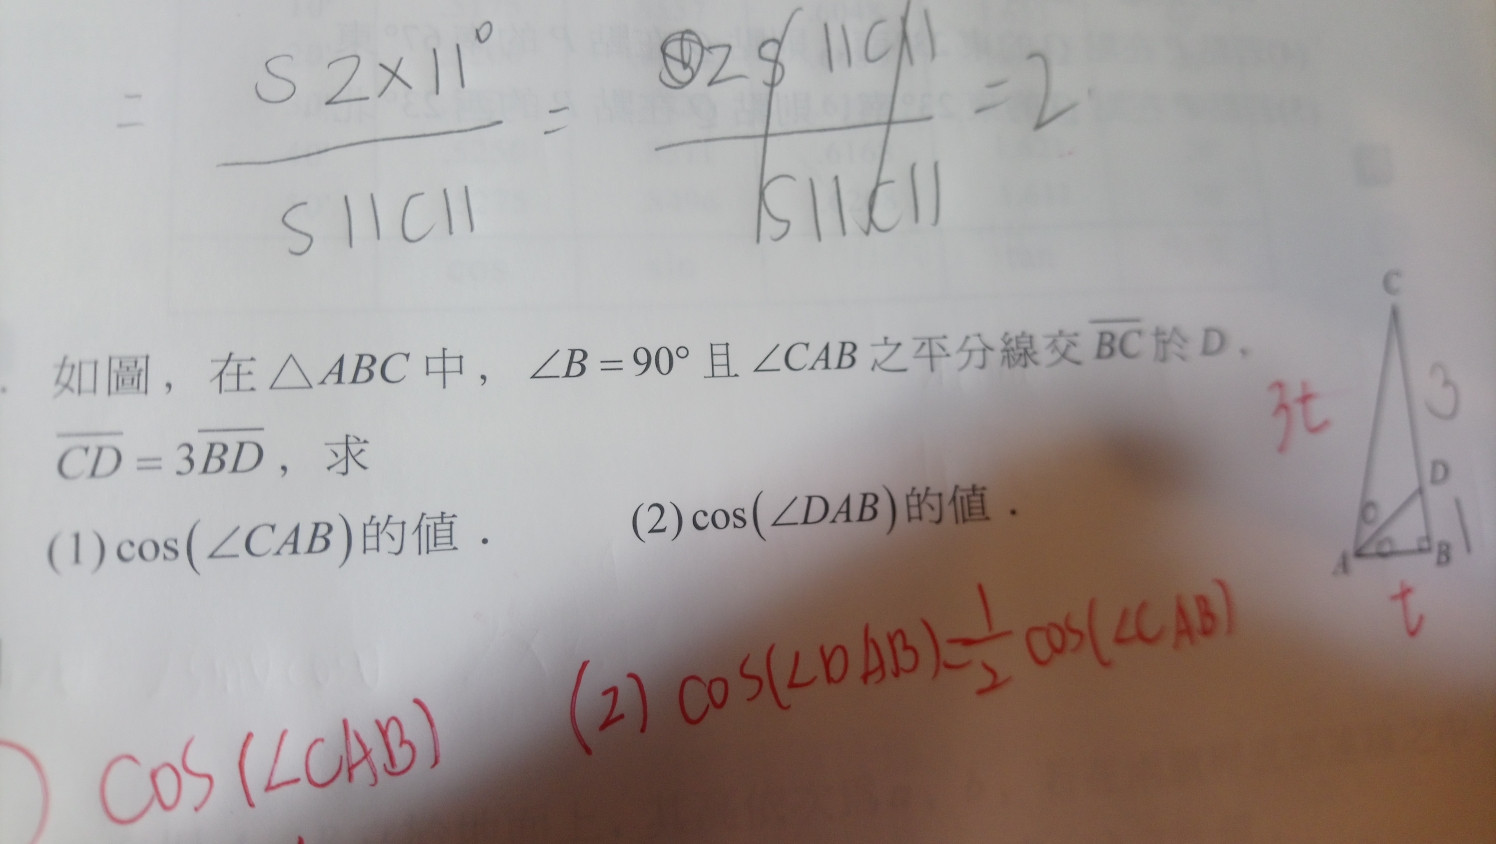 = S2×11° / S11C11 = 2S11C11 / S11C11 = 2
如圖，在△ABC中，∠B=90°且∠CAB之平分線交BC於D，
CD=3BD，求
(1)cos(∠CAB)的值． (2)cos(∠DAB)的值．
C
3t 3
D
1
A B
t
(2) cos(∠DAB)=1/2 cos(∠CAB)
) cos(∠CAB)